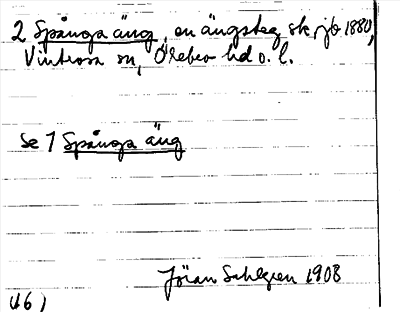 2 Spånga äng, en ängsteg sk, jb 1880,
Vintrosa sn, Örebro hd o. l.
Se 1 Spånga äng
Jöran Sahlgren 1908
U6)